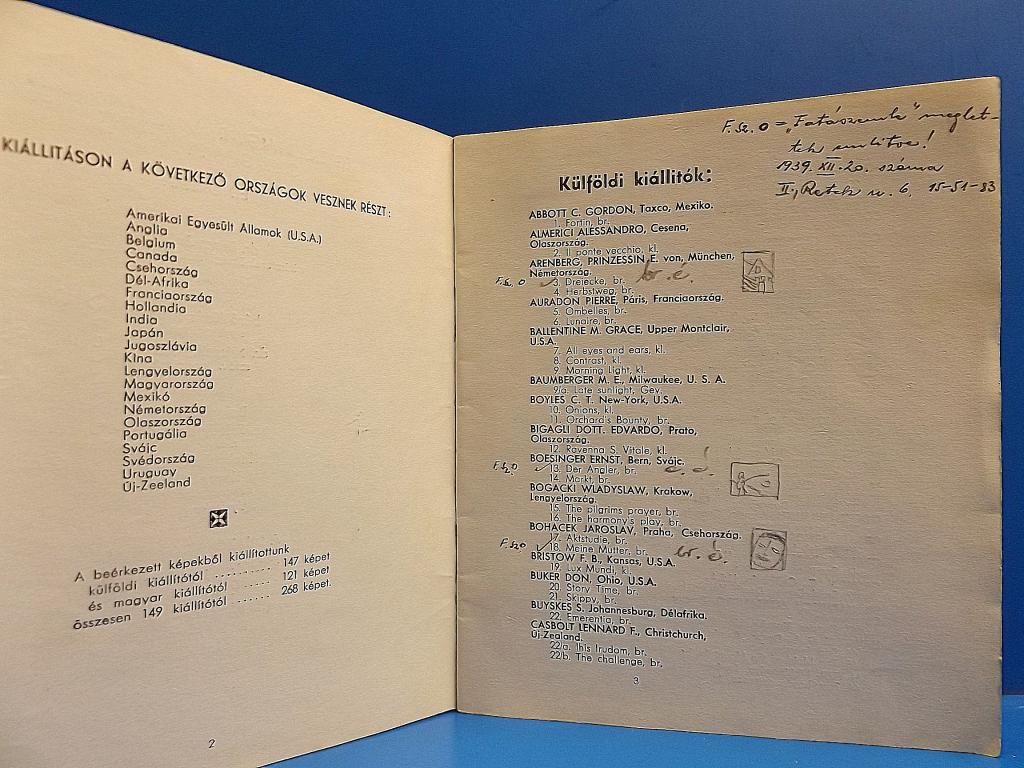 KIÁLLITÁSON A KÖVETKEZŐ ORSZÁGOK VESZNEK RÉSZT:
Amerikai Egyesült Államok (U.S.A.)
Anglia
Belgium
Canada
Csehország
Dél-Afrika
Franciaország
Hollandia
India
Japán
Jugoszlávia
Kína
Lengyelország
Magyarország
Mexikó
Németország
Olaszország
Portugália
Svájc
Svédország
Uruguay
Új-Zeeland
A beérkezett képekből kiállítottunk
külföldi kiállítótól .......... 147 képet
és magyar kiállítótól ....... 121 képet
összesen 149 kiállítótól ...... 268 képet.
2
F. Sz. O = „Fotószemle" meglet-
tek említve!
1939. XII. 20. száma
II, Retek u. 6. 15-51-83
Külföldi kiállítók:
ABBOTT C. GORDON, Taxco, Mexiko.
1. Fortin, br.
ALMERICI ALESSANDRO, Cesena,
Olaszország.
2. Il ponte vecchio, kl.
ARENBERG, PRINZESSIN E. von, München,
Németország.
F. Sz. O 3. Dreiecke, br. br. é.
4. Herbstweg, br.
AURADON PIERRE, Páris, Franciaország.
5. Ombelles, br.
6. Lunaire, br.
BALLENTINE M. GRACE, Upper Montclair,
U.S.A.
7. All eyes and ears, kl.
8. Contrast, kl.
9. Morning Light, kl.
BAUMBERGER M. E., Milwaukee, U. S. A.
9/a. Late sunlight, Gev.
BOYLES C. T. New-York, U.S.A.
10. Onions, kl.
11. Orchard's Bounty, br.
BIGAGLI DOTT. EDVARDO, Prato,
Olaszország.
12. Ravenna S. Vitale, kl.
BOESINGER ERNST, Bern, Svájc.
F. Sz. O 13. Der Angler, br.
14. Markt, br.
BOGACKI WLADYSLAW, Krakow,
Lengyelország.
15. The pilgrims prayer, br.
16. The harmony's play, br.
BOHACEK JAROSLAV, Praha, Csehország.
17. Aktstudie, br.
F. Sz O 18. Meine Mutter, br. br. é.
BRISTOW F. B., Kansas, U.S.A.
19. Lux Mundi, kl.
BUKER DON, Ohio, U.S.A.
20. Story Time, br.
21. Skippy, br.
BUYSKES S. Johannesburg, Délafrika.
22. Emerentia, br.
CASBOLT LENNARD F., Christchurch,
Új-Zealand.
22/a. This Irudom, br.
22/b. The challenge, br.
3